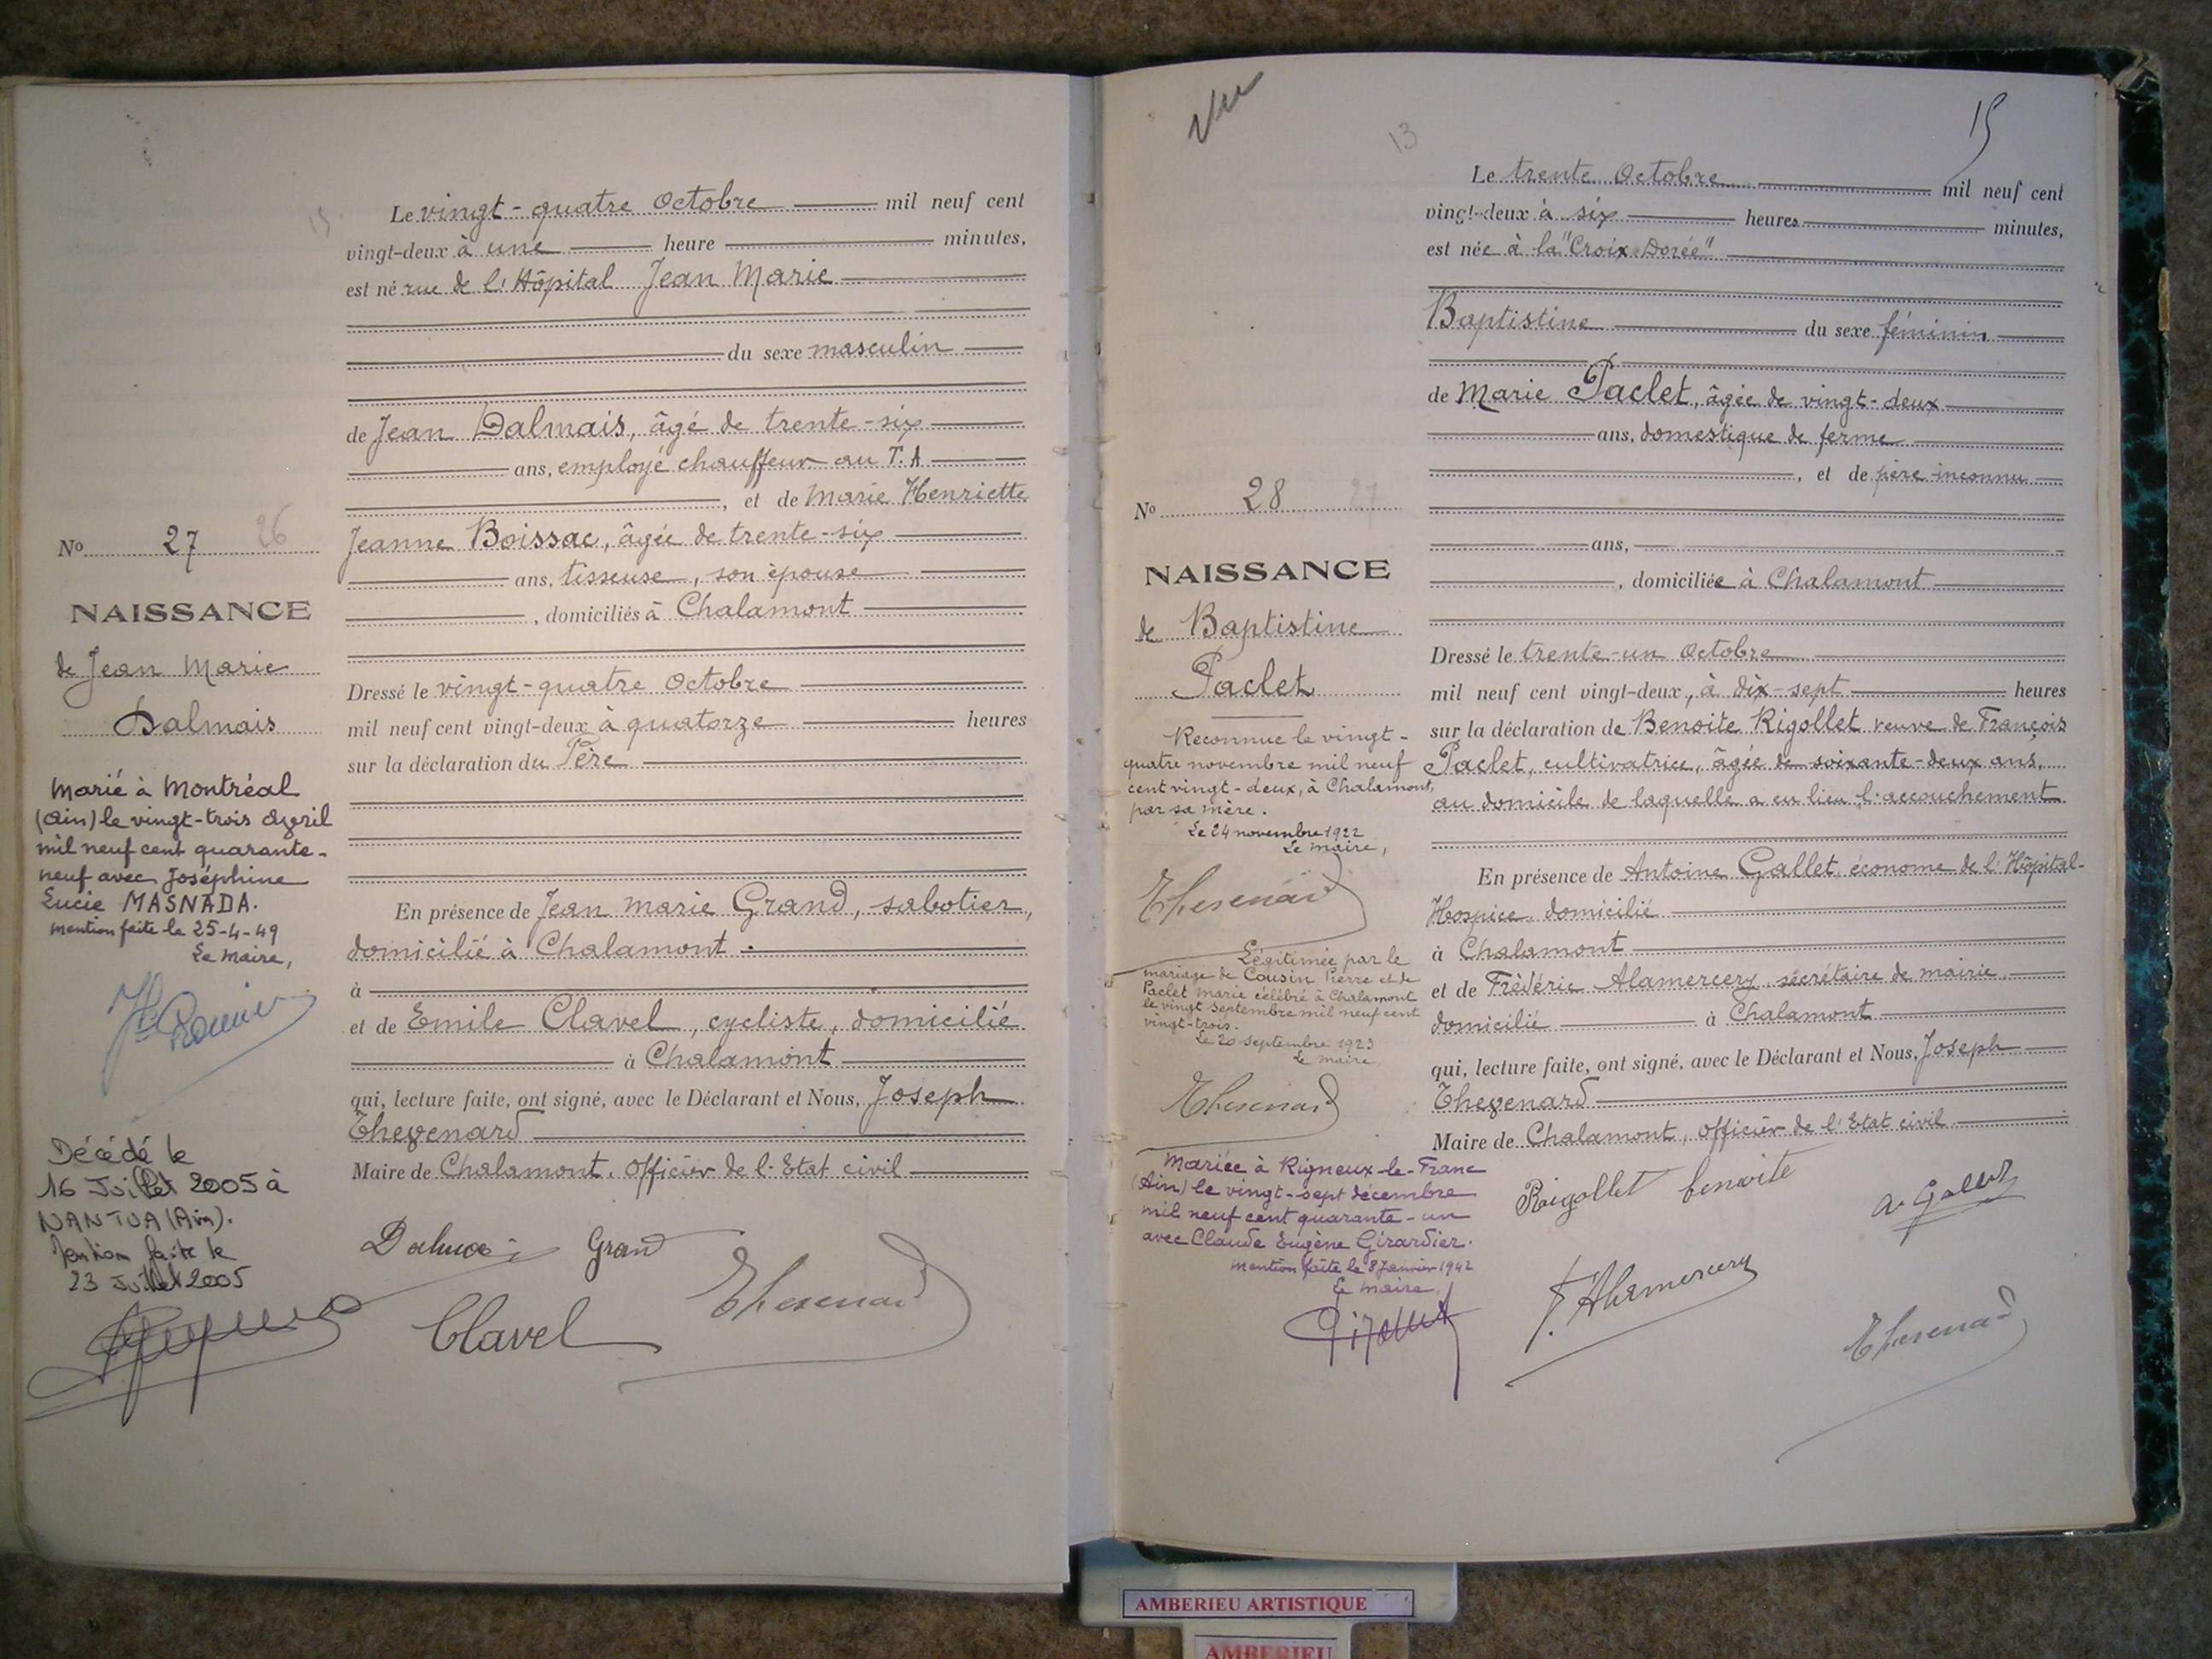 15
Le vingt-quatre Octobre mil neuf cent
vingt-deux à une heure minutes,
est né rue de l'Hôpital Jean Marie
du sexe masculin
de Jean Dalmais, âgé de trente-six
ans, employé chauffeur au T.A
, et de Marie Henriette
Jeanne Boissac, âgée de trente-six
ans, tisseuse, son épouse
, domiciliés à Chalamont
Dressé le vingt-quatre Octobre
mil neuf cent vingt-deux à quatorze heures
sur la déclaration du Père
En présence de Jean Marie Grand, sabotier,
domicilié à Chalamont
à
et de Emile Clavel, cycliste, domicilié
à Chalamont
qui, lecture faite, ont signé, avec le Déclarant et Nous, Joseph
Thevenard
Maire de Chalamont, Officier de l'Etat civil
Dalmais Grand
Clavel Thevenard
No 27 26
NAISSANCE
de Jean Marie
Dalmais
Marié à Montréal
(Ain) le vingt-trois Avril
mil neuf cent quarante-
neuf avec Joséphine
Lucie MASNADA.
Mention faite le 25-4-49
Le Maire,
Décédé le
16 Juillet 2005 à
NANTUA (Ain).
Mention faite le
23 Juillet 2005
Vu
13
15
Le trente Octobre mil neuf cent
vingt-deux à six heures minutes,
est née à la "Croix-Dorée"
Baptistine du sexe féminin
de Marie Paclet, âgée de vingt-deux
ans, domestique de ferme
, et de père inconnu
ans,
, domiciliée à Chalamont
Dressé le trente-un Octobre
mil neuf cent vingt-deux, à dix-sept heures
sur la déclaration de Benoite Rigollet veuve de François
Paclet, cultivatrice, âgée de soixante-deux ans,
au domicile de laquelle a eu lieu l'accouchement
En présence de Antoine Gallet, économe de l'Hôpital-
Hospice, domicilié
à Chalamont
et de Frédéric Alamercery, secrétaire de mairie
domicilié à Chalamont
qui, lecture faite, ont signé, avec le Déclarant et Nous, Joseph
Thevenard
Maire de Chalamont, Officier de l'Etat civil
Rigollet benoite A. Gallet
F. Alamercery Thevenard
No 28 27
NAISSANCE
de Baptistine
Paclet
Reconnue le vingt-
quatre novembre mil neuf
cent vingt-deux, à Chalamont,
par sa mère.
Le 24 novembre 1922
Le Maire,
Thevenard
Légitimée par le
mariage de Cousin Pierre et de
Paclet Marie célébré à Chalamont
le vingt Septembre mil neuf cent
vingt-trois.
Le 20 septembre 1923
Le maire
Thevenard
Mariée à Rigneux-le-Franc
(Ain) le vingt-sept décembre
mil neuf cent quarante-un
avec Claude Eugène Girardier.
Mention faite le 8 Janvier 1942
Le maire,
AMBERIEU ARTISTIQUE
AMBERIEU